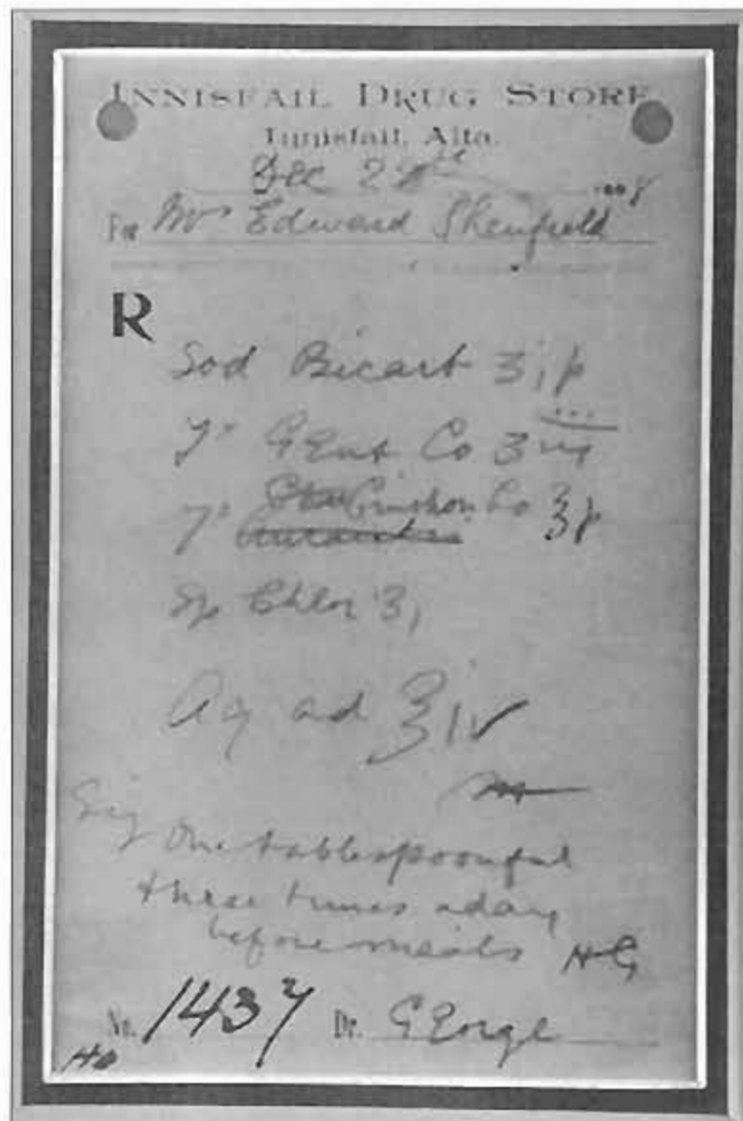 INNISFAIL DRUG STORE
Innisfail, Alta.
Dec 28th 1908
For Mrs Edward Shenfield
R
Sod Bicarb ʒi
Tr Gent Co ʒ
Tr Co ʒ
Sp Chlor ʒi
Aq ad ℥iv
M
Sig One tablespoonful
three times a day
before meals HG
No. 1437 Dr. George
HG